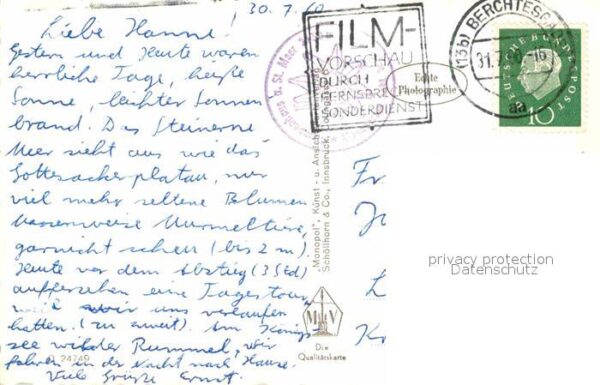 30.7.60
Liebe Hanne!
Gestern und Heute waren
herrliche Tage, heiße
Sonne, leichter Sonnen
brand. Das Steinerne
Meer sieht aus wie das
Gottesackerplatau, nur
viel mehr seltene Blumen
Massenweise Murmeltiere,
garnicht scheu (bis 2 m).
Heute vor dem Abstieg (3 Std)
eine Tagestour
wir uns verlaufen
hatten. (zu weit). Am Königs-
see wilder Rummel, wir
fahren in der Nacht nach Hause.
Viele Grüße Ernst.
24749
FILM-
VORSCHAU
DURCH
FERNSPRE
SONDERDIENST
Echte
Photographie
(13b) BERCHTESG
31.7.60-16
aa
DEUTSCHE BUNDESPOST
10
u. St. Meer
"Monopol", Kunst- u. Ansich
Schöllhorn & Co., Innsbruck,
MV
Die
Qualitätskarte
Fr
L
K
privacy protection
Datenschutz